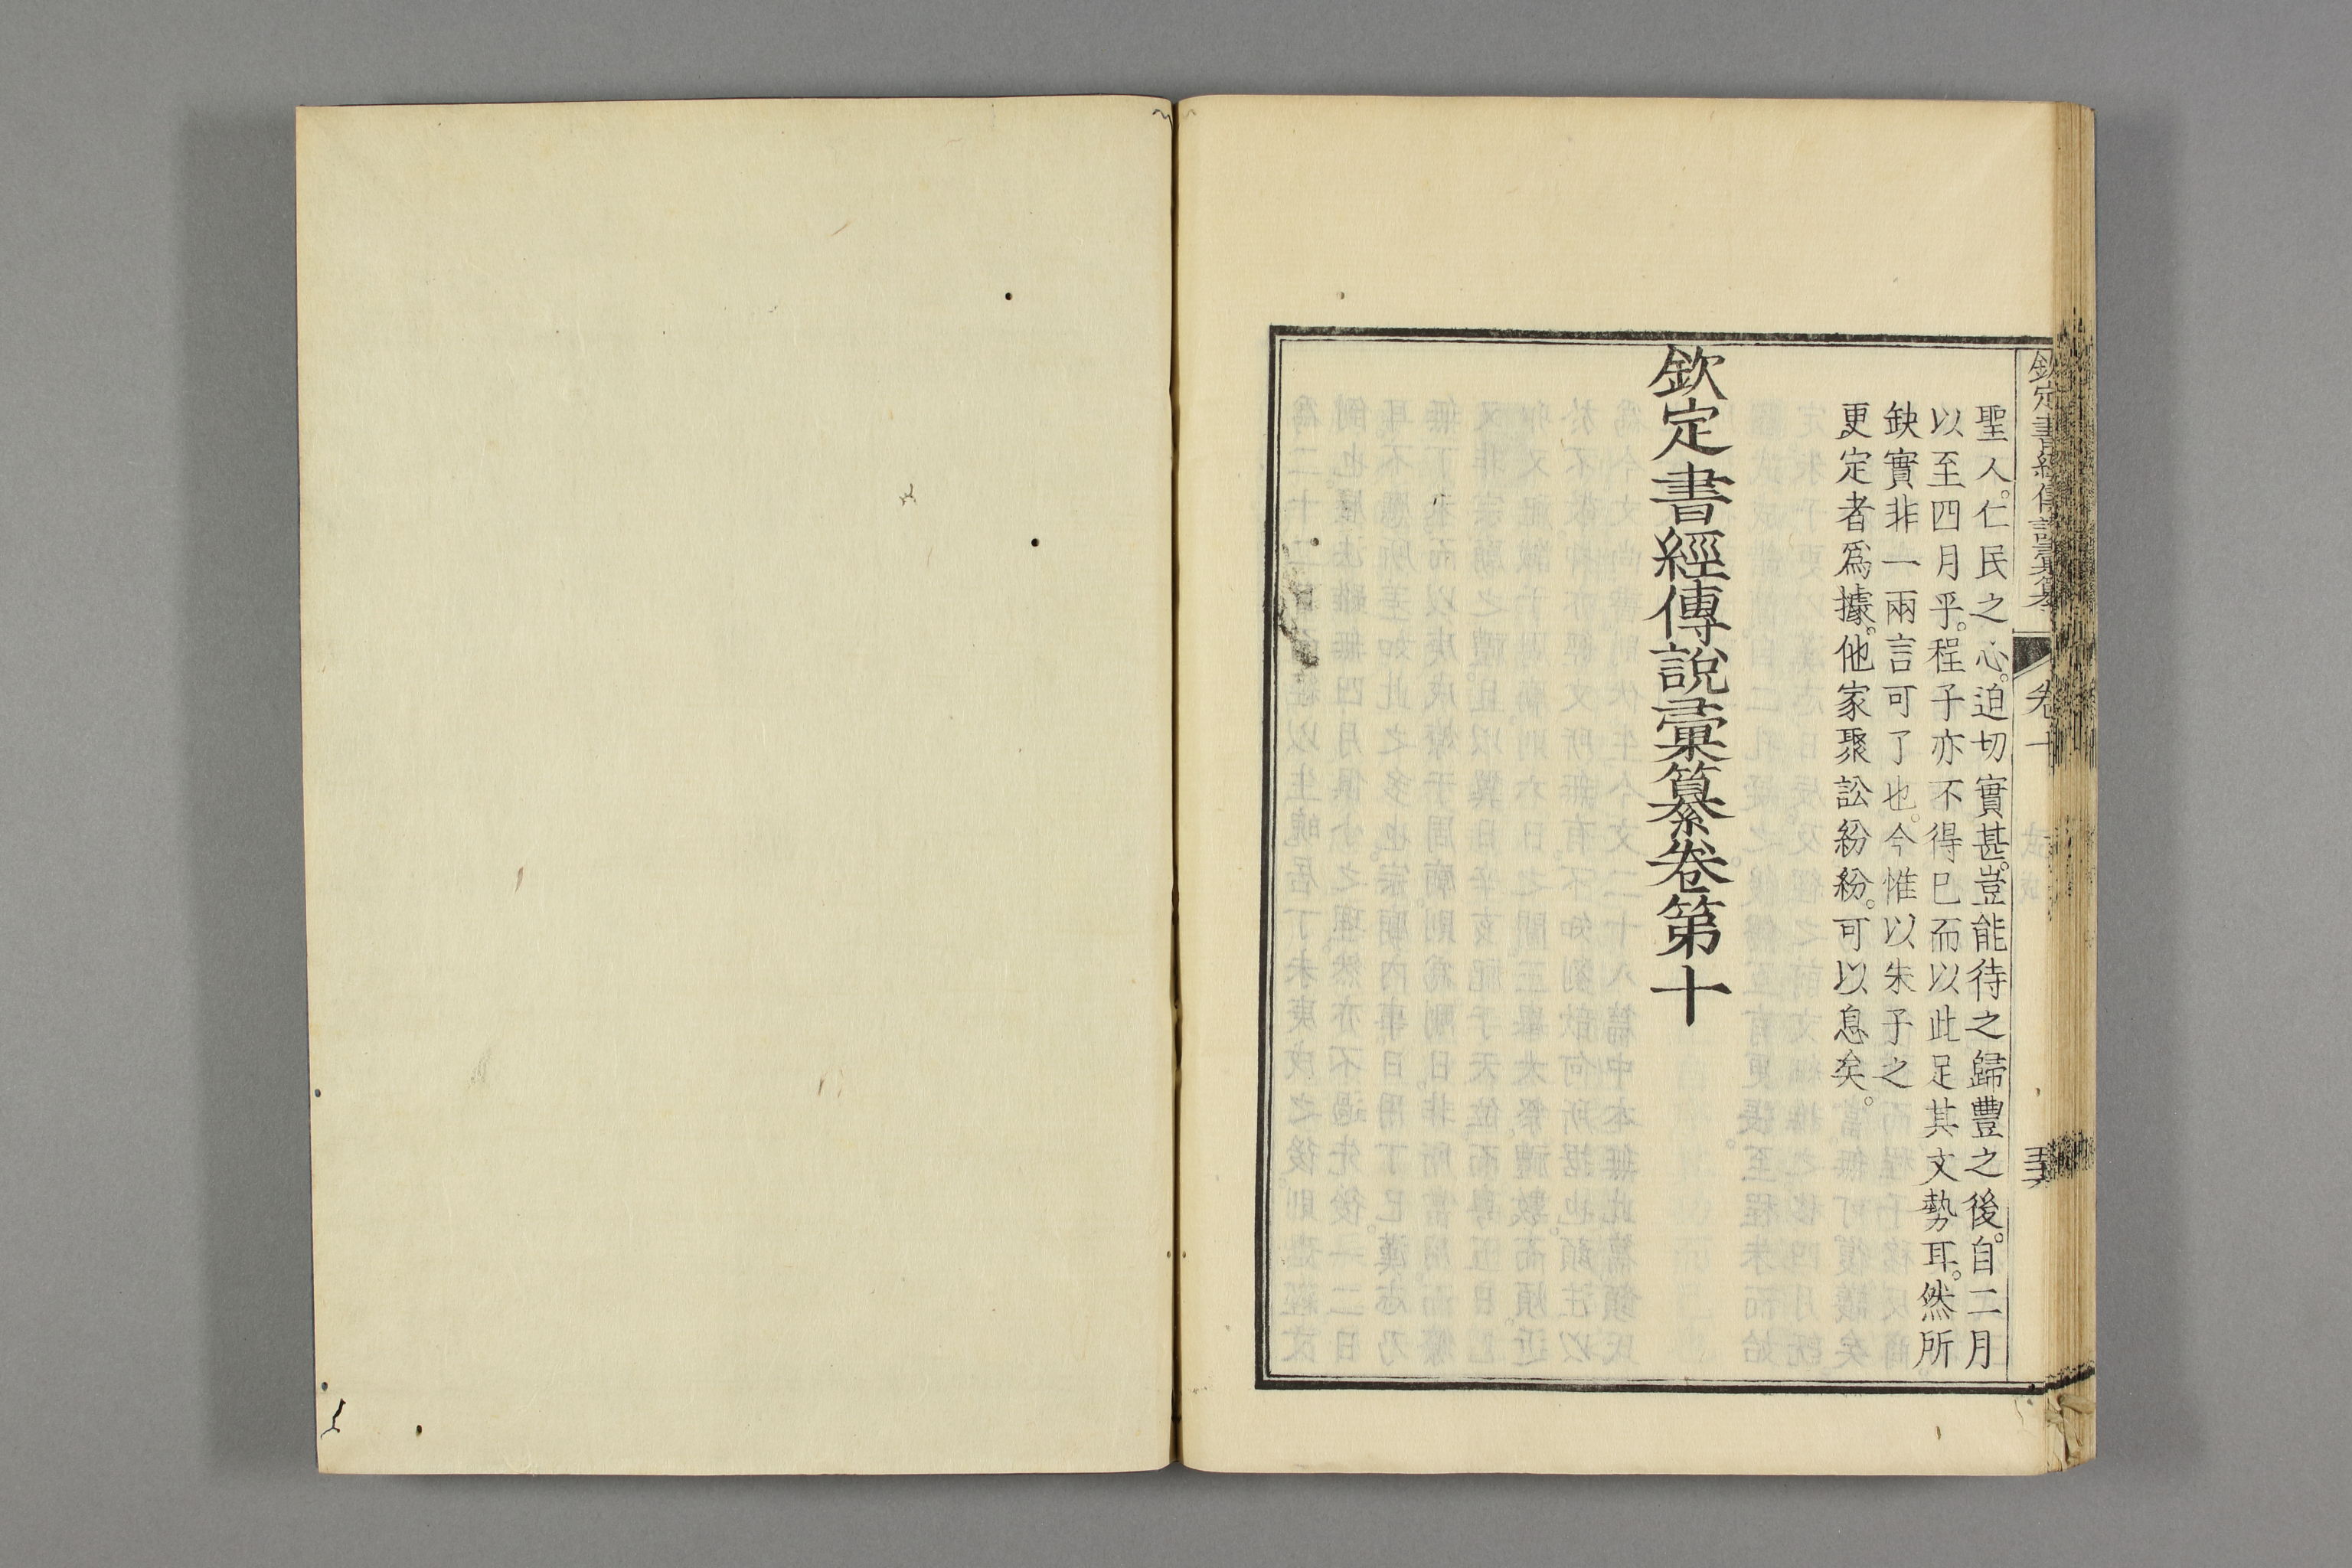 欽定書經傳說彙纂 卷十
聖人。仁民之心。迫切實甚。豈能待之歸豐之後。自二月
以至四月乎。程子亦不得已而以此足其文勢耳。然所
缺實非一兩言可了也。今惟以朱子之
更定者爲據。他家聚訟紛紛。可以息矣。
欽定書經傳說彙纂卷第十